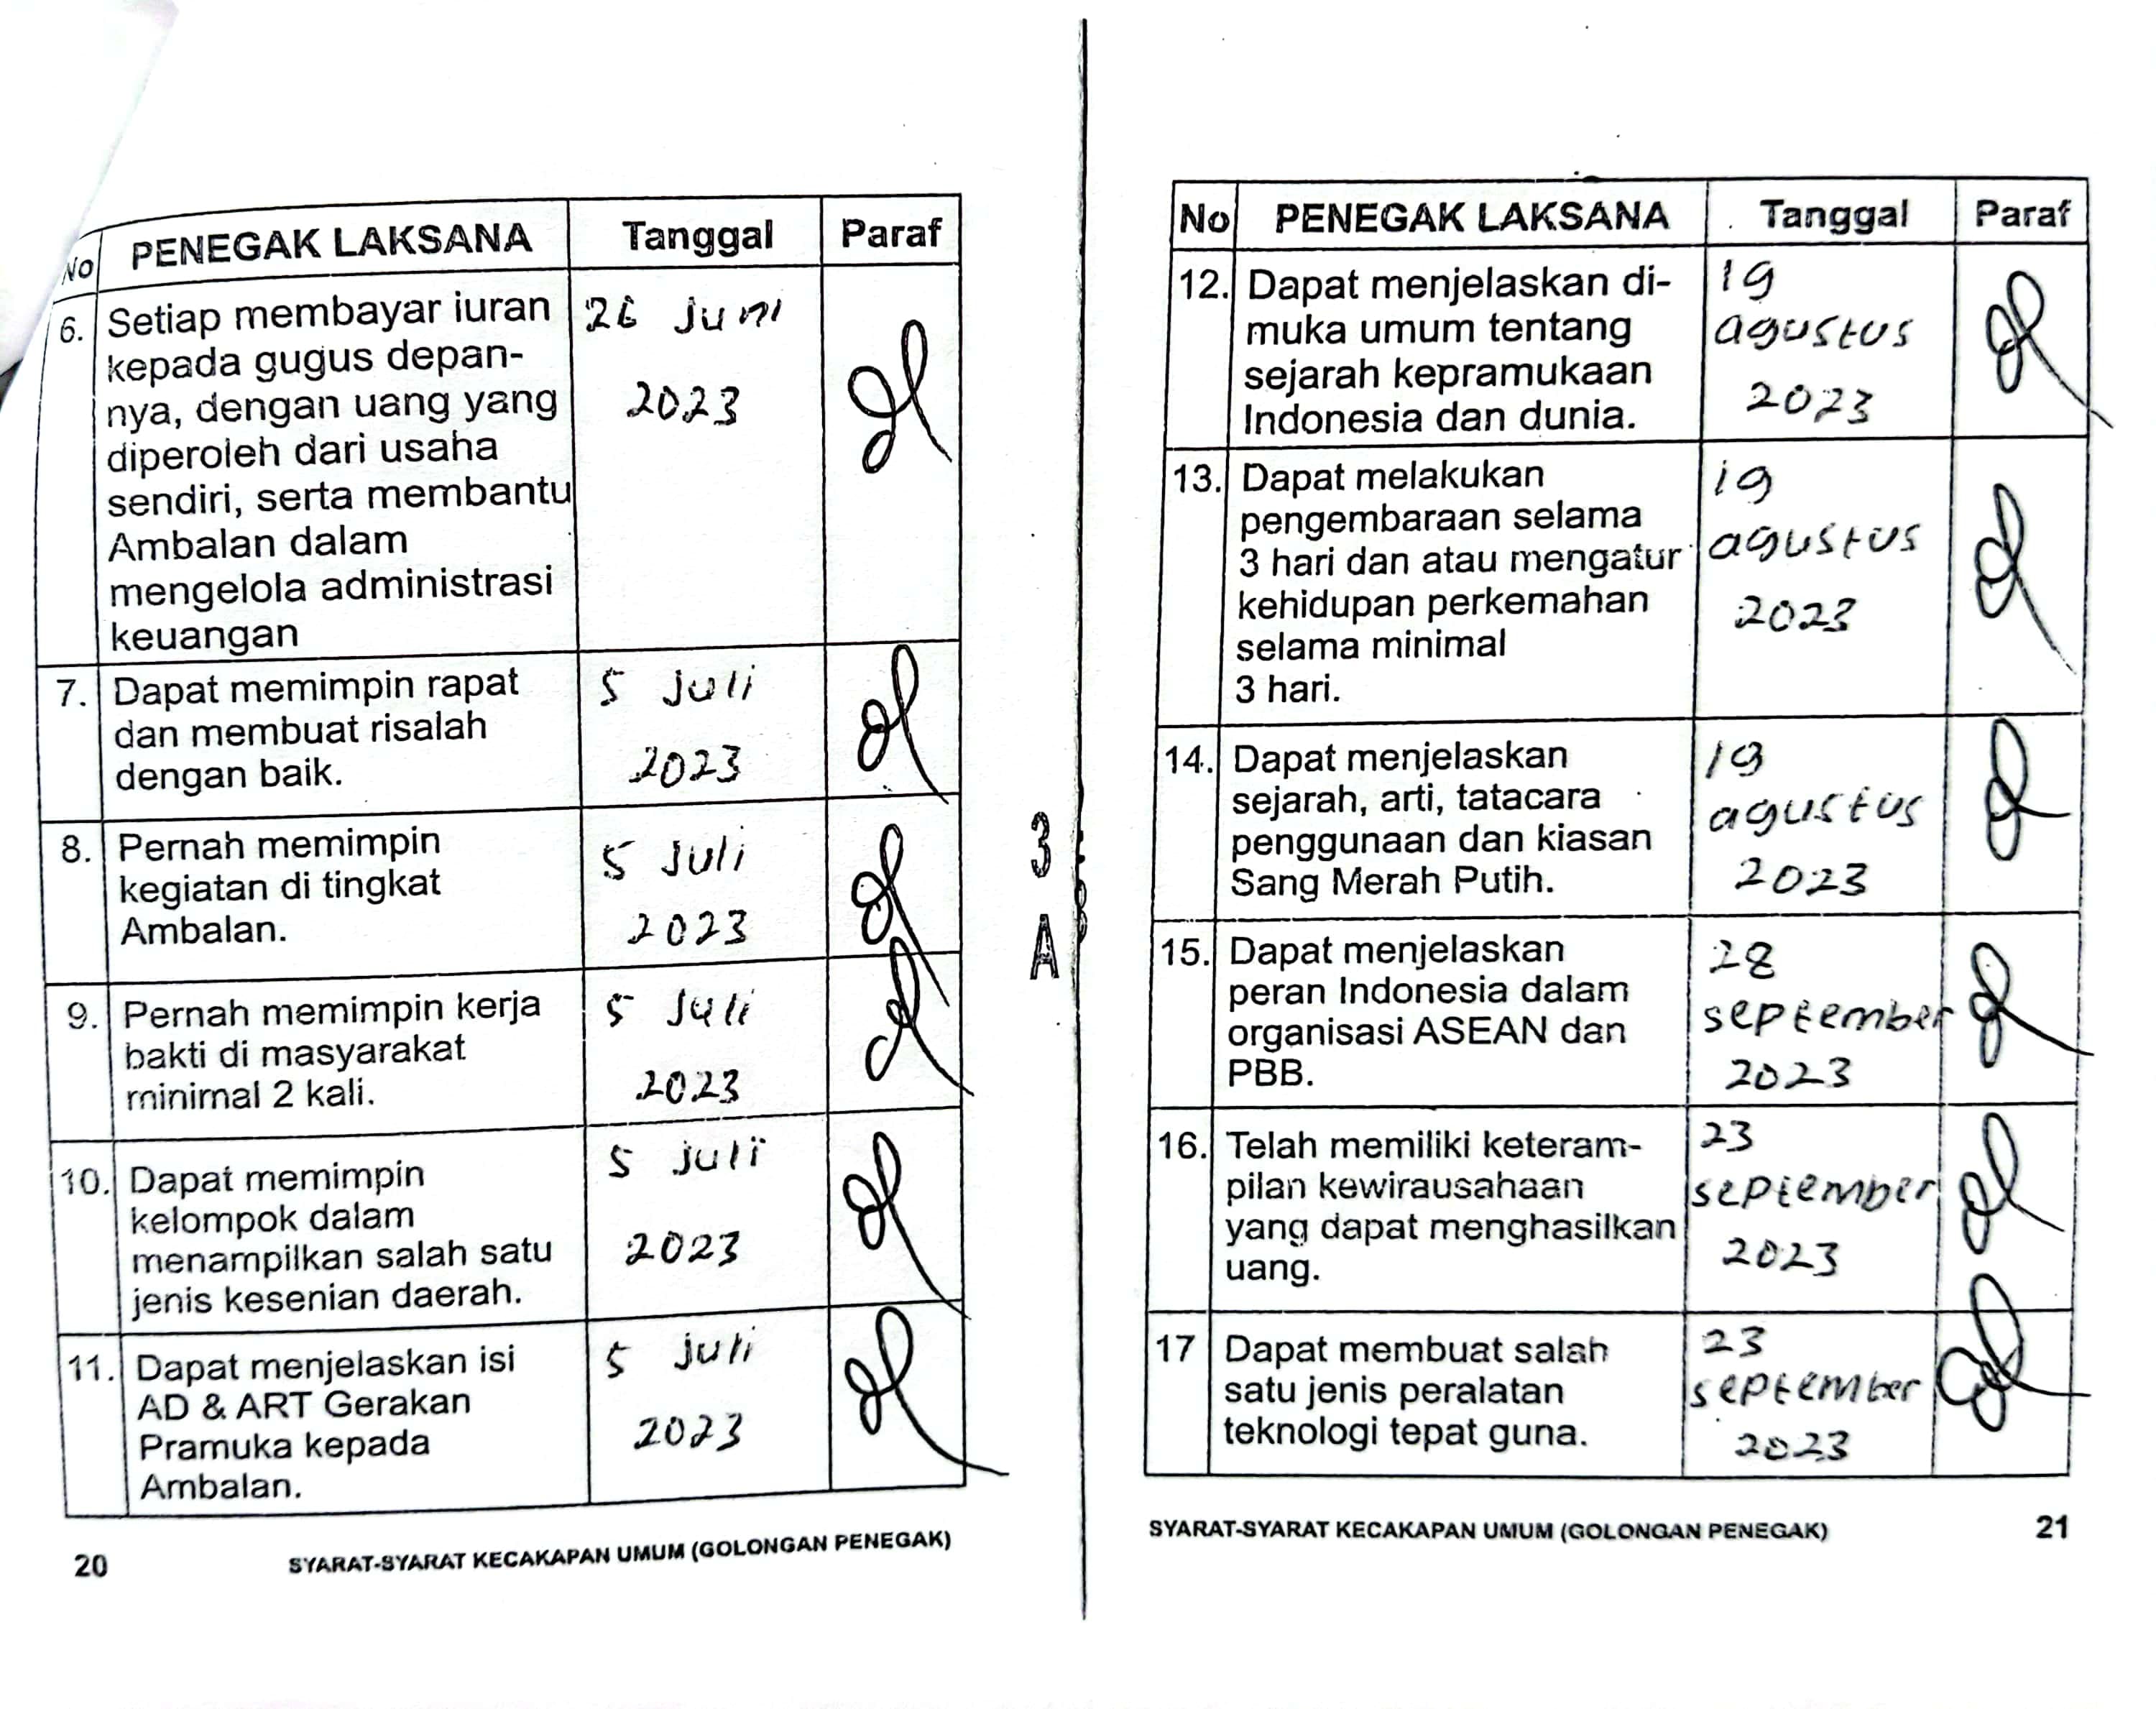 No PENEGAK LAKSANA Tanggal Paraf
6. Setiap membayar iuran
kepada gugus depan-
nya, dengan uang yang
diperoleh dari usaha
sendiri, serta membantu
Ambalan dalam
mengelola administrasi
keuangan
26 Juni
2023
7. Dapat memimpin rapat
dan membuat risalah
dengan baik.
5 Juli
2023
8. Pernah memimpin
kegiatan di tingkat
Ambalan.
5 Juli
2023
9. Pernah memimpin kerja
bakti di masyarakat
minimal 2 kali.
5 Juli
2023
10. Dapat memimpin
kelompok dalam
menampilkan salah satu
jenis kesenian daerah.
5 Juli
2023
11. Dapat menjelaskan isi
AD & ART Gerakan
Pramuka kepada
Ambalan.
5 Juli
2023
20 SYARAT-SYARAT KECAKAPAN UMUM (GOLONGAN PENEGAK)
3
A
No PENEGAK LAKSANA Tanggal Paraf
12. Dapat menjelaskan di-
muka umum tentang
sejarah kepramukaan
Indonesia dan dunia.
19
agustus
2023
13. Dapat melakukan
pengembaraan selama
3 hari dan atau mengatur
kehidupan perkemahan
selama minimal
3 hari.
19
agustus
2023
14. Dapat menjelaskan
sejarah, arti, tatacara
penggunaan dan kiasan
Sang Merah Putih.
19
agustus
2023
15. Dapat menjelaskan
peran Indonesia dalam
organisasi ASEAN dan
PBB.
28
september
2023
16. Telah memiliki keteram-
pilan kewirausahaan
yang dapat menghasilkan
uang.
23
september
2023
17 Dapat membuat salah
satu jenis peralatan
teknologi tepat guna.
23
september
2023
SYARAT-SYARAT KECAKAPAN UMUM (GOLONGAN PENEGAK) 21